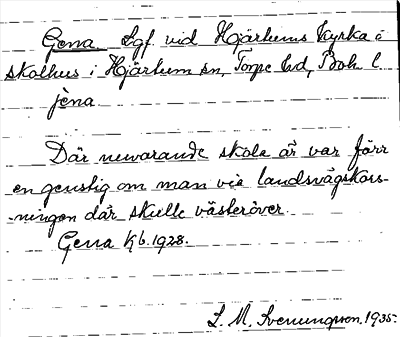 Gena Lgf. vid Hjärtums Kyrka o
skolhus i Hjärtum sn, Torpe hd, Boh. l.
jèna
Där nuvarande skola är var förr
en genstig om man via landsvägskors-
-ningen där skulle västeröver.
Gena Kb. 1928.
L. M. Svenungsson. 1935.